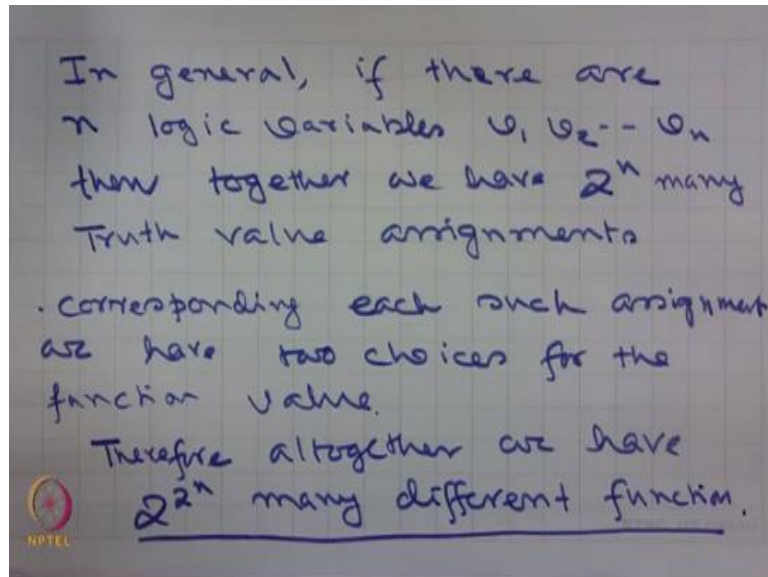 In general, if there are
n logic variables v₁ v₂ -- vₙ
then together we have 2ⁿ many
Truth value assignments
. corresponding each such assignment
we have two choices for the
function value.
Therefore altogether we have
2^2ⁿ many different function.
NPTEL